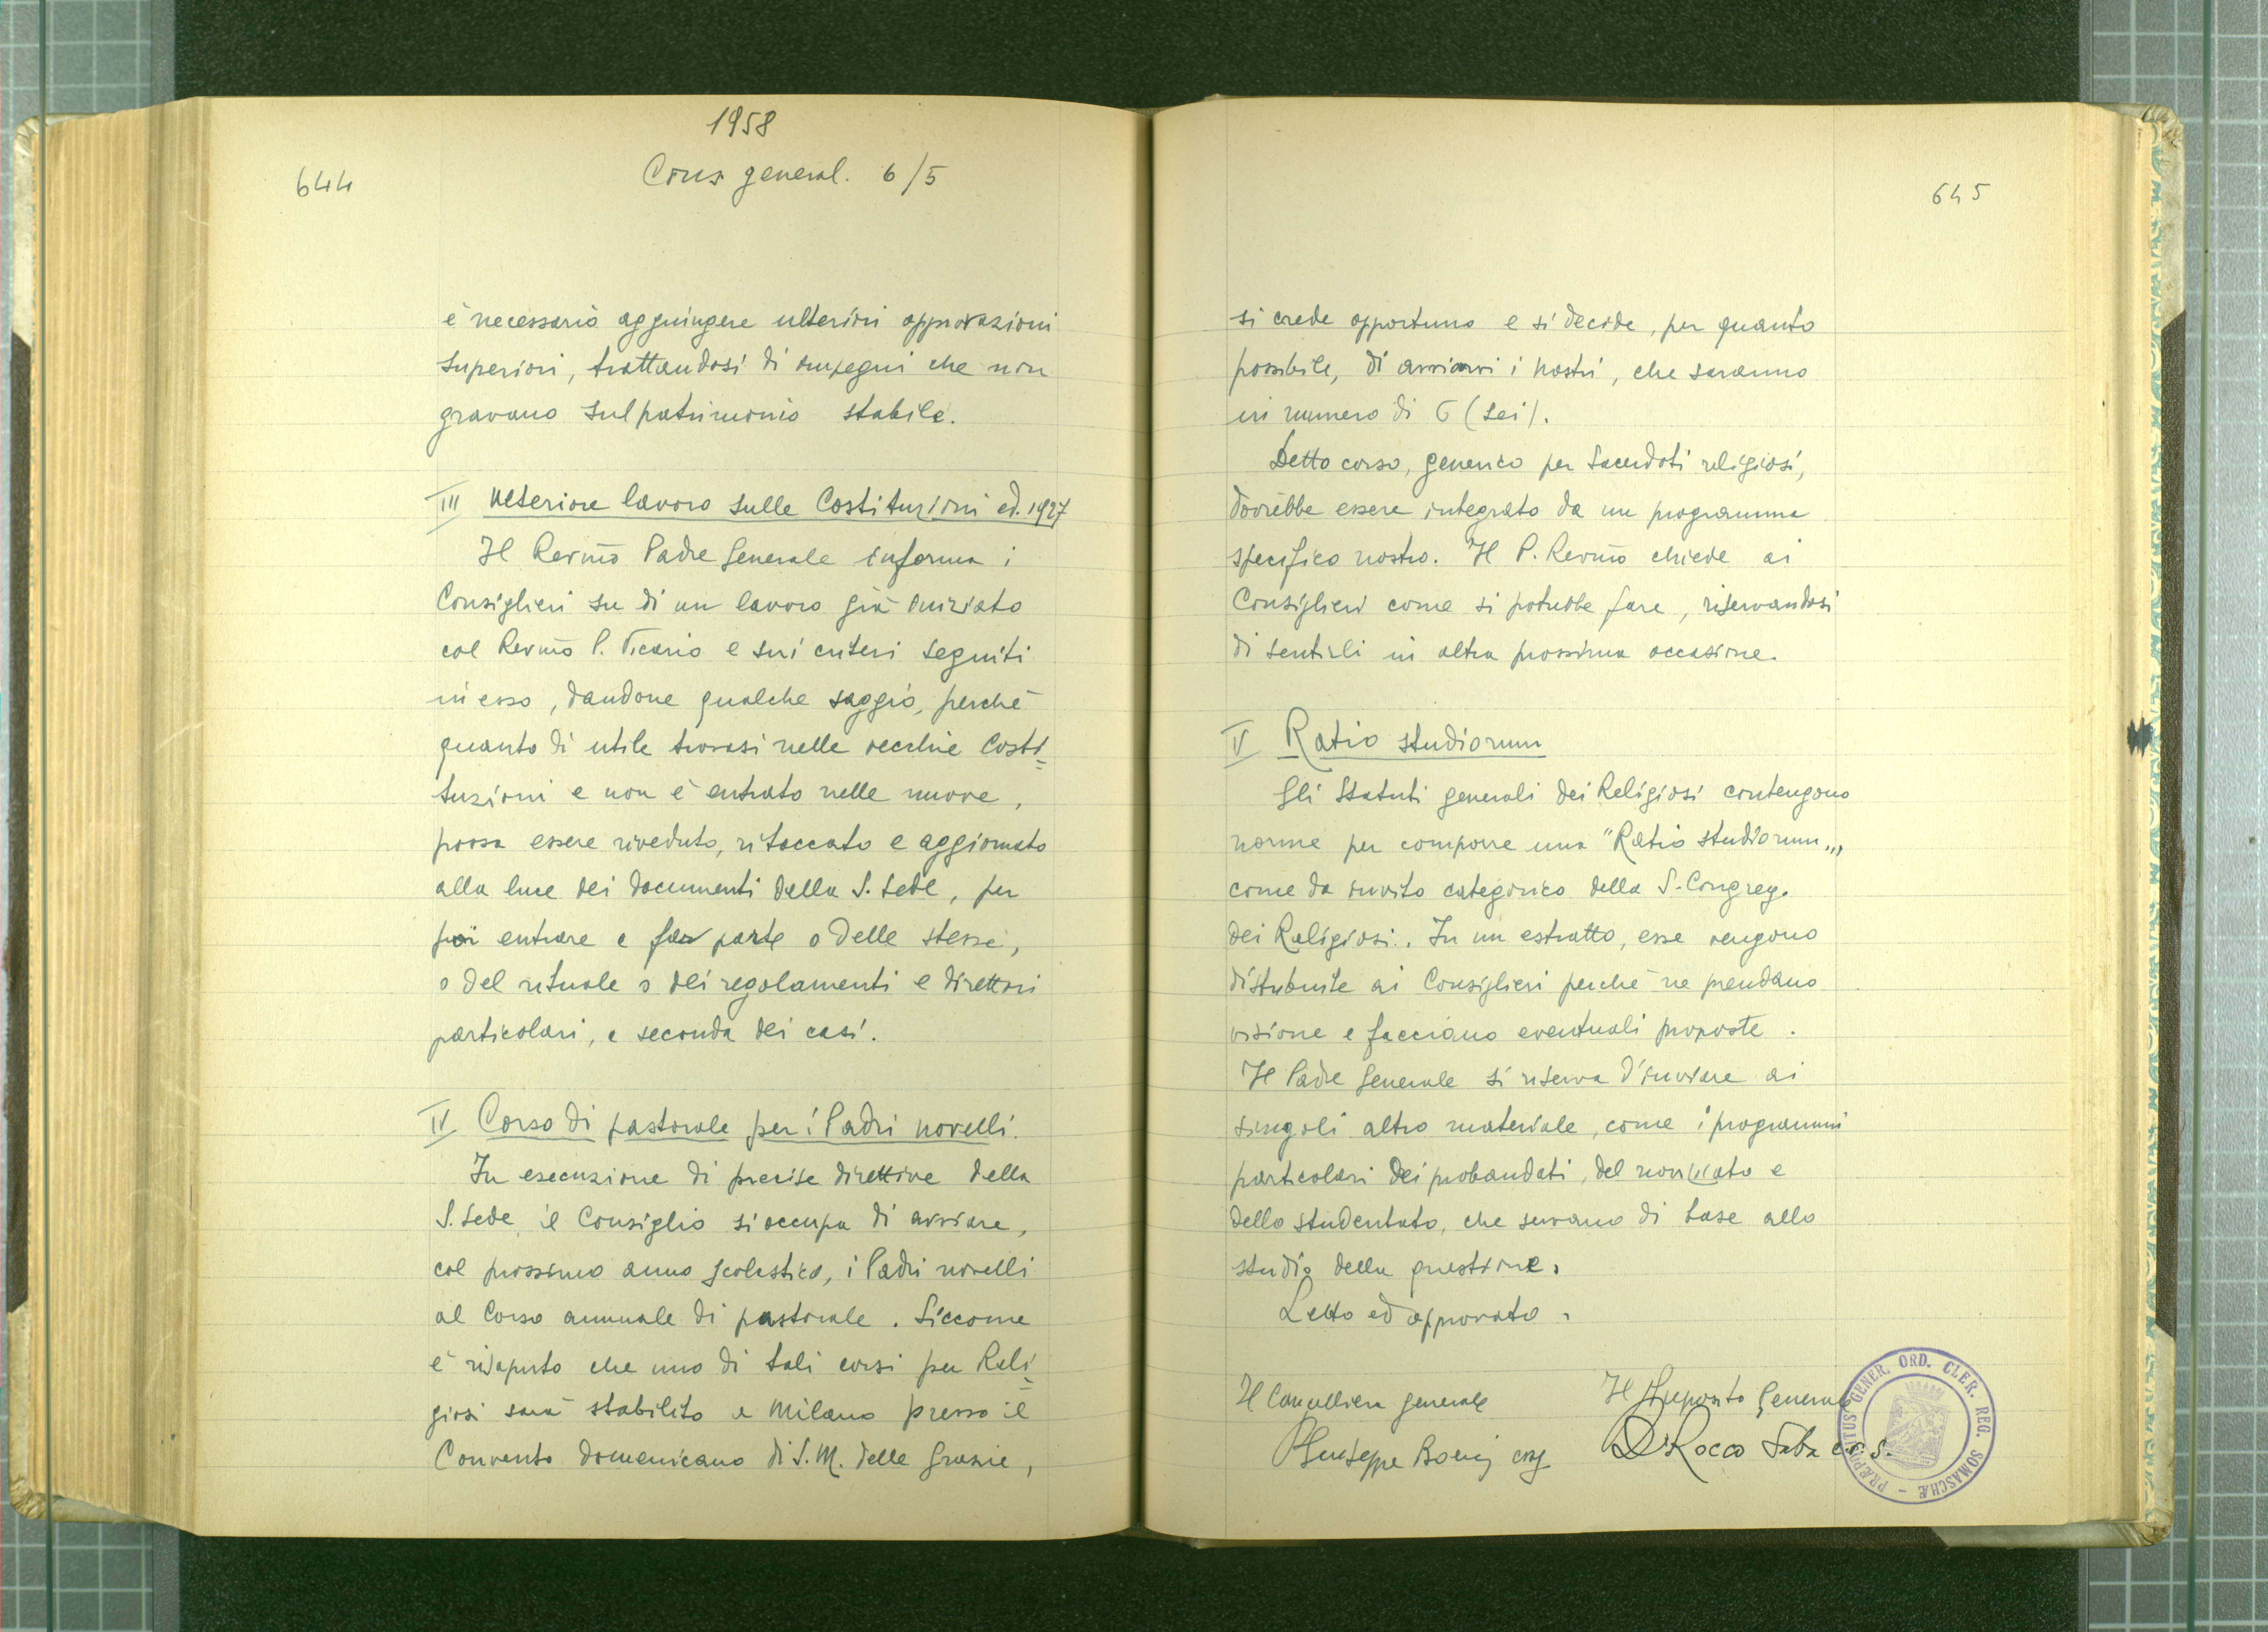 1958
644
Cons general. 6/5
è necessario aggiungere ulteriori approvazioni
superiori, trattandosi di impegni che non
gravano sul patrimonio stabile.
III Ulteriore lavoro sulle Costituzioni ed. 1927
Il Rev.mo Padre Generale informa i
Consiglieri su di un lavoro già iniziato
col Rev.mo P. Vicario e sui criteri seguiti
in esso, dandone qualche saggio, perchè
quanto di utile trovasi nelle vecchie Costi=
tuzioni e non è entrato nelle nuove,
possa essere riveduto, ritoccato e aggiornato
alla luce dei documenti della S. Sede, per
poi entrare a far parte o delle stesse,
o del rituale o dei regolamenti e direttori
particolari, a seconda dei casi.
IV Corso di pastorale per i Padri novelli.
In esecuzione di precise direttive della
S. Sede, il Consiglio si occupa di avviare,
col prossimo anno scolastico, i Padri novelli
al Corso annuale di pastorale. Siccome
è risaputo che uno di tali corsi per Reli=
giosi sarà stabilito a Milano presso il
Convento domenicano di S. M. delle Grazie,
645
si crede opportuno e si decide, per quanto
possibile, di avviarvi i nostri, che saranno
in numero di 6 (sei).
Detto corso, generico per Sacerdoti religiosi,
dovrebbe essere integrato da un programma
specifico nostro. Il P. Rev.mo chiede ai
Consiglieri come si potrebbe fare, riservandosi
di sentirli in altra prossima occasione.
V Ratio studiorum
Gli Statuti generali dei Religiosi contengono
norme per comporre una "Ratio studiorum„,
come da invito categorico della S. Congreg.
dei Religiosi. In un estratto, esse vengono
distribuite ai Consiglieri perchè ne prendano
visione e facciano eventuali proposte.
Il Padre Generale si riserva d'inviare ai
singoli altro materiale, come i programmi
particolari dei probandati, del noviziato e
dello studentato, che servano di base allo
studio della questione.
Letto ed approvato.
Il Cancelliere generale
Il Preposito Generale
P Giuseppe crs
D. Rocco c. r. s.
PRÆPOSITUS GENER. ORD. CLER. REG. SOMASCHÆ -